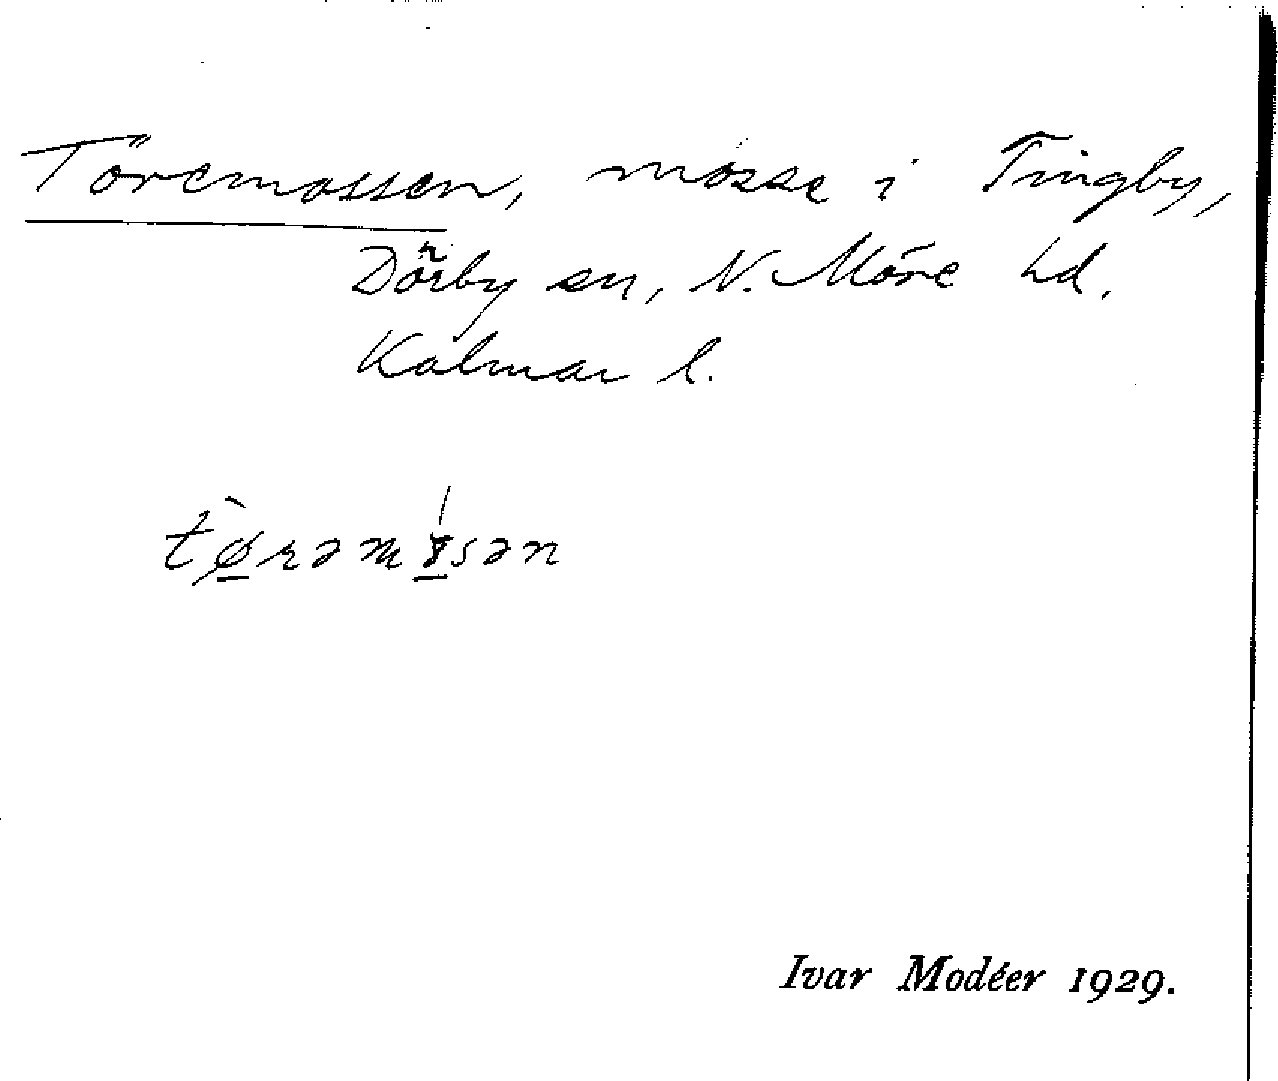 Töremossen, mosse i Tingby,
Dörby sn, N. Möre hd.
Kalmar l.
Ivar Modéer 1929.